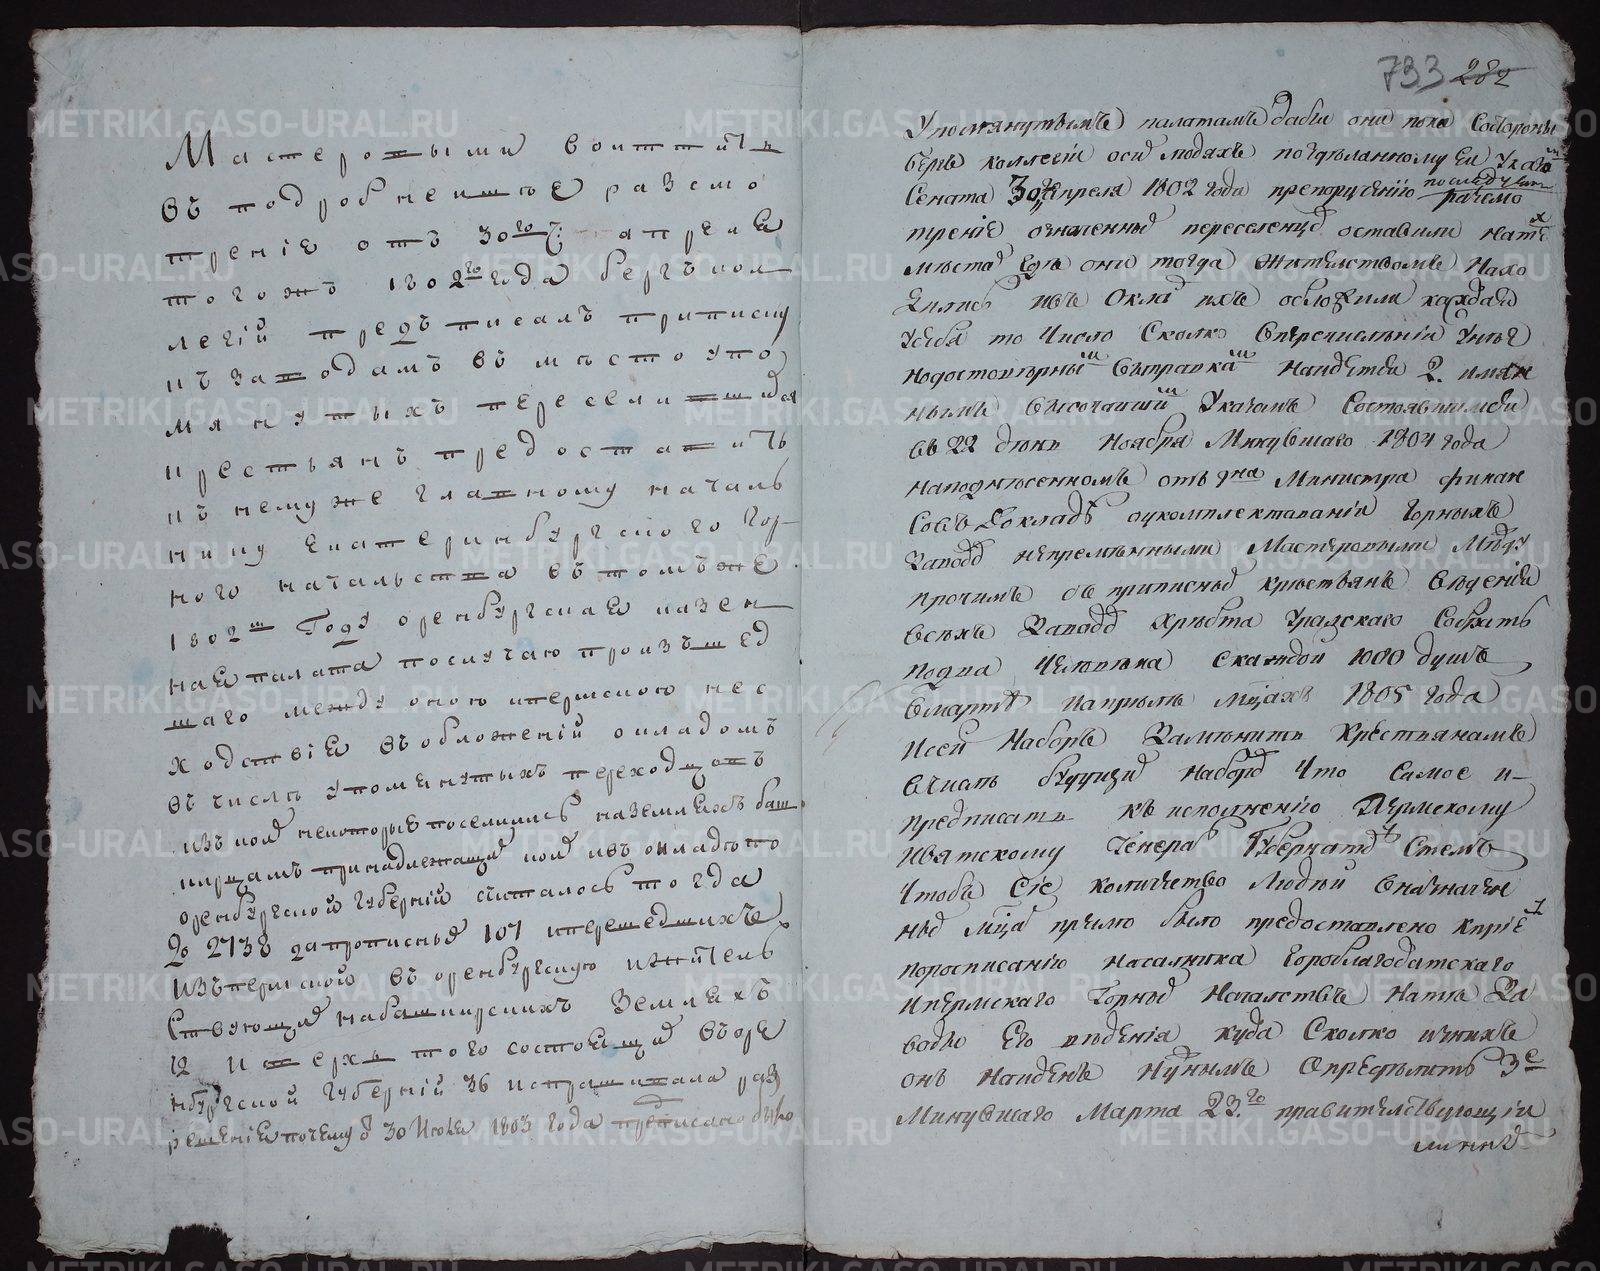 Мастеровыми воитти
въ подробнеишее разсмо
трение отъ 30го ч: апреля
тогожъ 1802го года бергъ кол
легiй предъписалъ приписку
къ заводамъ въ место упо
мянутыхъ переселившихся
крестьянъ предоставить
къ немуже главному началь
нику Екатеринбургского гор
ного начальства въ томъже
1802м Году оренбургская казен
ная палата послучаю произъшед
шаго между оною ипермскою нес
ходствiе въобложенiй окладомъ
въ числе упоменутыхъ переходцовъ
изъ коих некоторые поселились наземляхъ баш
кирцамъ принадлежащих коих изъ окладу по
оренбургской губернiй считалось тогда
до 2738 запрописных 107 иперешедшихъ
изъпермской въ оренбургскую ижитель
ствующих набашкирскихъ землехъ
12 и сверхъ того состоящих въоре
нбургской губернiй 36 испрашивала раз
решенiе почему 30 Июня 1803 года предписано было
733 282
Упомянутымъ палатамъ дабы они пока Состороны
бергъ коллегiи осих людяхъ поздъланному Ей Указом
Сената 30 Апреля 1802 года препорученiю последуетъ разсмо
тренiе означенных переселенцов оставили натех
местах где они тогда жительствомъ Нахо
дились ивъ Оклад ихъ обложили каждая
усебя то Число Сколко Вперечисленiи Унее
подостоверным выправкам Наидется 2. имян
нымъ высочайшим Указомъ Состоявшимся
въ 22 день Ноября Минувшаго 1804 года
наподнесенномъ отъ Гна Министра финан
совъ Докладъ окомплектованiи Горныхъ
Заводов непременными Мастеровыми Между
прочимъ съ приписных крестьянъ Ведения
всехъ Заводов Хребта Уралскаго Собрать
подва Человека Скаждой 1000 душъ
Вмарте Иапреле мцахъ 1805 года
исей Наборъ Заменить Крестьянамъ
вчисть будущих Наборов Что Самое и
предписать къ исполненiю Пермскому
ивятскому Генералъ Губернат
Чтобъ Сiе количество Людей Вназначен
ных мцах прямо было предоставлено Кприе
поросписанiю насалника Гороблагодатскаго
ипермскаго Горных Началствъ Натъ За
воды Его ведения куда Сколко изнихъ
онъ Найдетъ Нужнымъ Определить 3е
Минувшаго Марта 23.го правителствующiй